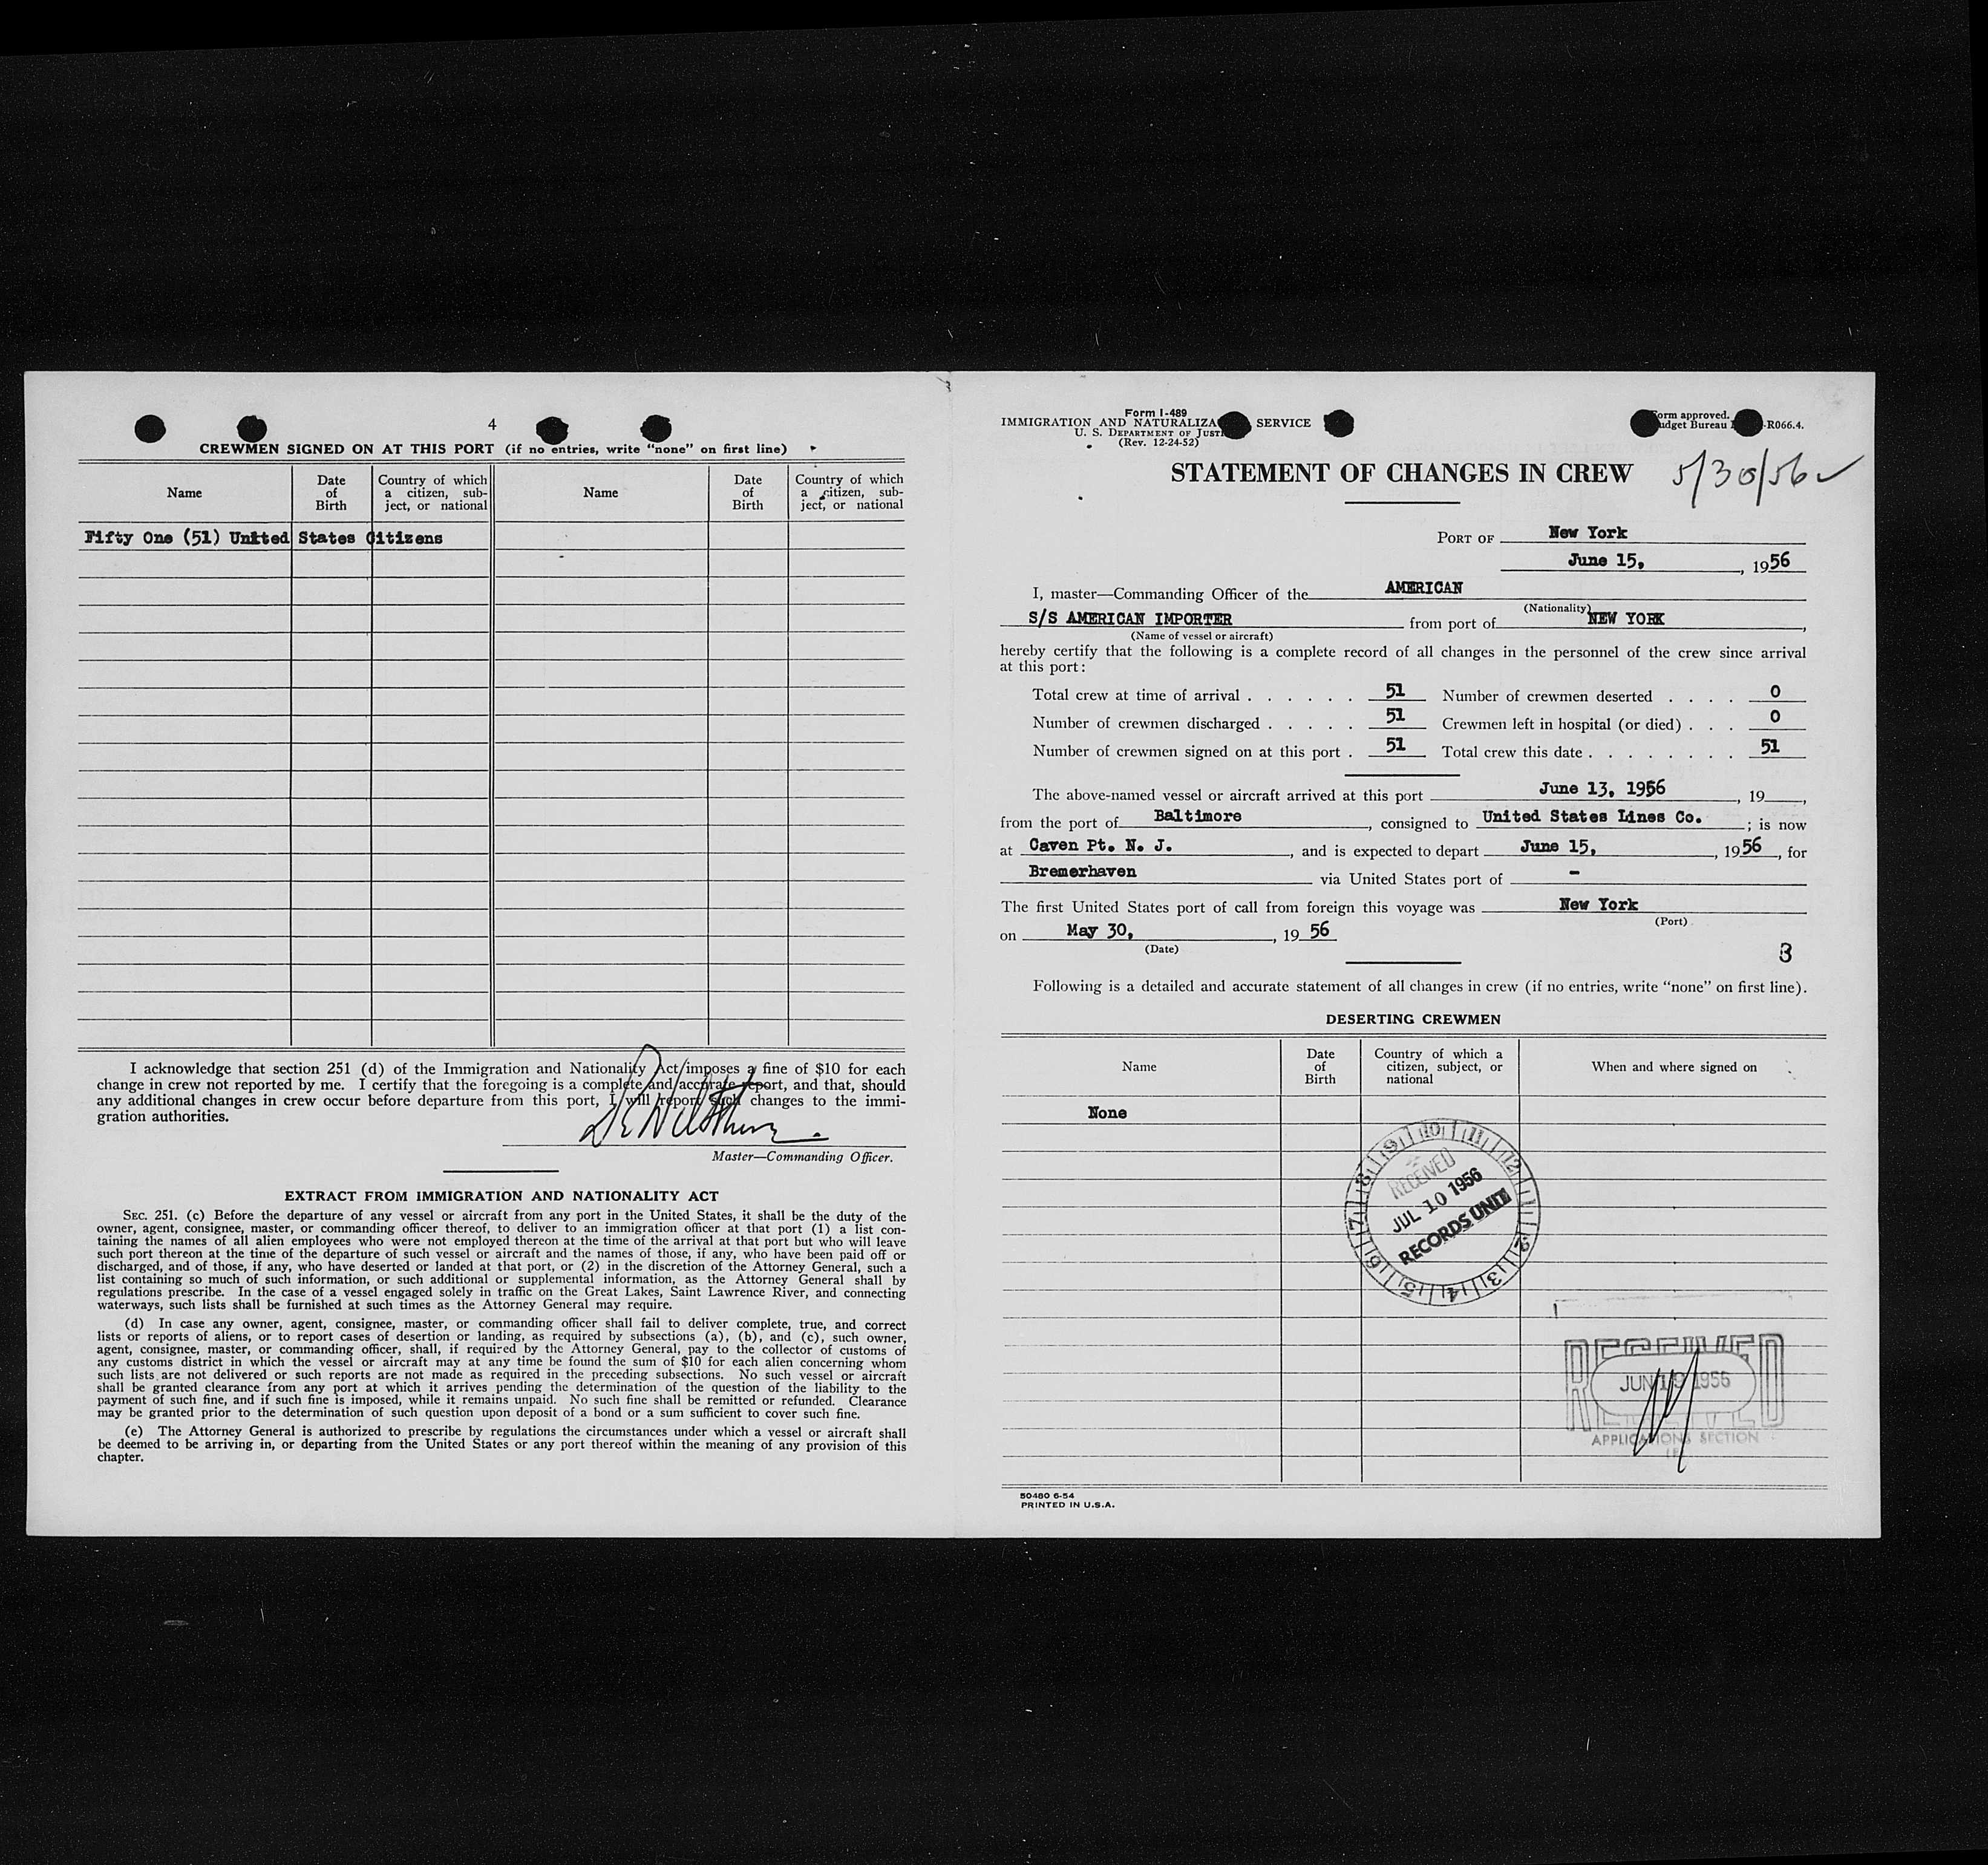 4
CREWMEN SIGNED ON AT THIS PORT (if no entries, write "none" on first line)
Name
Date of Birth
Country of which a citizen, sub-ject, or national
Name
Date of Birth
Country of which a citizen, sub-ject, or national
Fifty One (51) United States Citizens
I acknowledge that section 251 (d) of the Immigration and Nationality Act imposes a fine of $10 for each
change in crew not reported by me. I certify that the foregoing is a complete and accurate report, and that, should
any additional changes in crew occur before departure from this port, I will report such changes to the immi-
gration authorities.
Master—Commanding Officer.
EXTRACT FROM IMMIGRATION AND NATIONALITY ACT
SEC. 251. (c) Before the departure of any vessel or aircraft from any port in the United States, it shall be the duty of the
owner, agent, consignee, master, or commanding officer thereof, to deliver to an immigration officer at that port (1) a list con-
taining the names of all alien employees who were not employed thereon at the time of the arrival at that port but who will leave
such port thereon at the time of the departure of such vessel or aircraft and the names of those, if any, who have been paid off or
discharged, and of those, if any, who have deserted or landed at that port, or (2) in the discretion of the Attorney General, such a
list containing so much of such information, or such additional or supplemental information, as the Attorney General shall by
regulations prescribe. In the case of a vessel engaged solely in traffic on the Great Lakes, Saint Lawrence River, and connecting
waterways, such lists shall be furnished at such times as the Attorney General may require.
(d) In case any owner, agent, consignee, master, or commanding officer shall fail to deliver complete, true, and correct
lists or reports of aliens, or to report cases of desertion or landing, as required by subsections (a), (b), and (c), such owner,
agent, consignee, master, or commanding officer, shall, if required by the Attorney General, pay to the collector of customs of
any customs district in which the vessel or aircraft may at any time be found the sum of $10 for each alien concerning whom
such lists are not delivered or such reports are not made as required in the preceding subsections. No such vessel or aircraft
shall be granted clearance from any port at which it arrives pending the determination of the question of the liability to the
payment of such fine, and if such fine is imposed, while it remains unpaid. No such fine shall be remitted or refunded. Clearance
may be granted prior to the determination of such question upon deposit of a bond or a sum sufficient to cover such fine.
(e) The Attorney General is authorized to prescribe by regulations the circumstances under which a vessel or aircraft shall
be deemed to be arriving in, or departing from the United States or any port thereof within the meaning of any provision of this
chapter.
Form I-489
IMMIGRATION AND NATURALIZA SERVICE
U. S. DEPARTMENT OF JUST
(Rev. 12-24-52)
orm approved.
udget Bureau -R066.4.
STATEMENT OF CHANGES IN CREW
5/30/56
PORT OF New York
June 15, , 1956
I, master—Commanding Officer of the AMERICAN
(Nationality)
S/S AMERICAN IMPORTER from port of NEW YORK ,
(Name of vessel or aircraft)
hereby certify that the following is a complete record of all changes in the personnel of the crew since arrival
at this port:
Total crew at time of arrival . . . . . . 51 Number of crewmen deserted . . . . 0
Number of crewmen discharged . . . . . 51 Crewmen left in hospital (or died) . . . 0
Number of crewmen signed on at this port . 51 Total crew this date . . . . . . . . 51
The above-named vessel or aircraft arrived at this port June 13, 1956 , 19 ,
from the port of Baltimore , consigned to United States Lines Co. ; is now
at Caven Pt. N. J. , and is expected to depart June 15, , 1956 , for
Bremerhaven via United States port of -
The first United States port of call from foreign this voyage was New York
(Port)
on May 30, , 19 56
(Date)
3
Following is a detailed and accurate statement of all changes in crew (if no entries, write "none" on first line).
DESERTING CREWMEN
Name
Date of Birth
Country of which a citizen, subject, or national
When and where signed on
None
9 10 11 12 1 2 3 4 5 6 7 8
RECEIVED
JUL 10 1956
RECORDS UNIT
RECEIVED
JUN 19 1956
RECEIVED
APPLICATIONS SECTION
50480 6-54
PRINTED IN U.S.A.